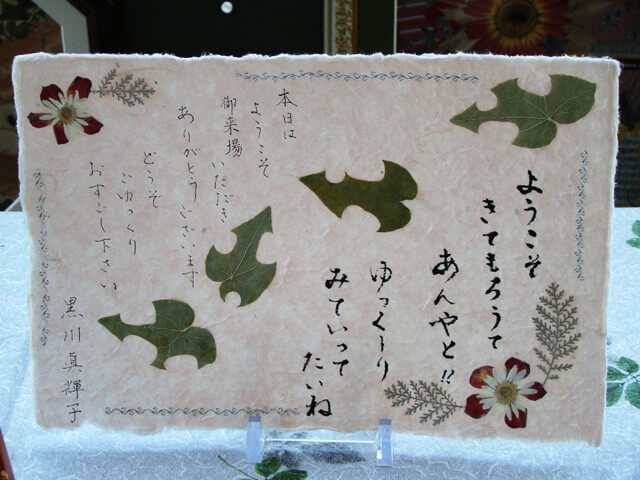 ようこそ
きてもろうて
あんやと!!
ゆっくり
みていって
たいね
本日は
ようこそ
御来場
いただき
ありがとうございます
どうぞ
ごゆっくり
おすごし下さい
黒川眞輝子